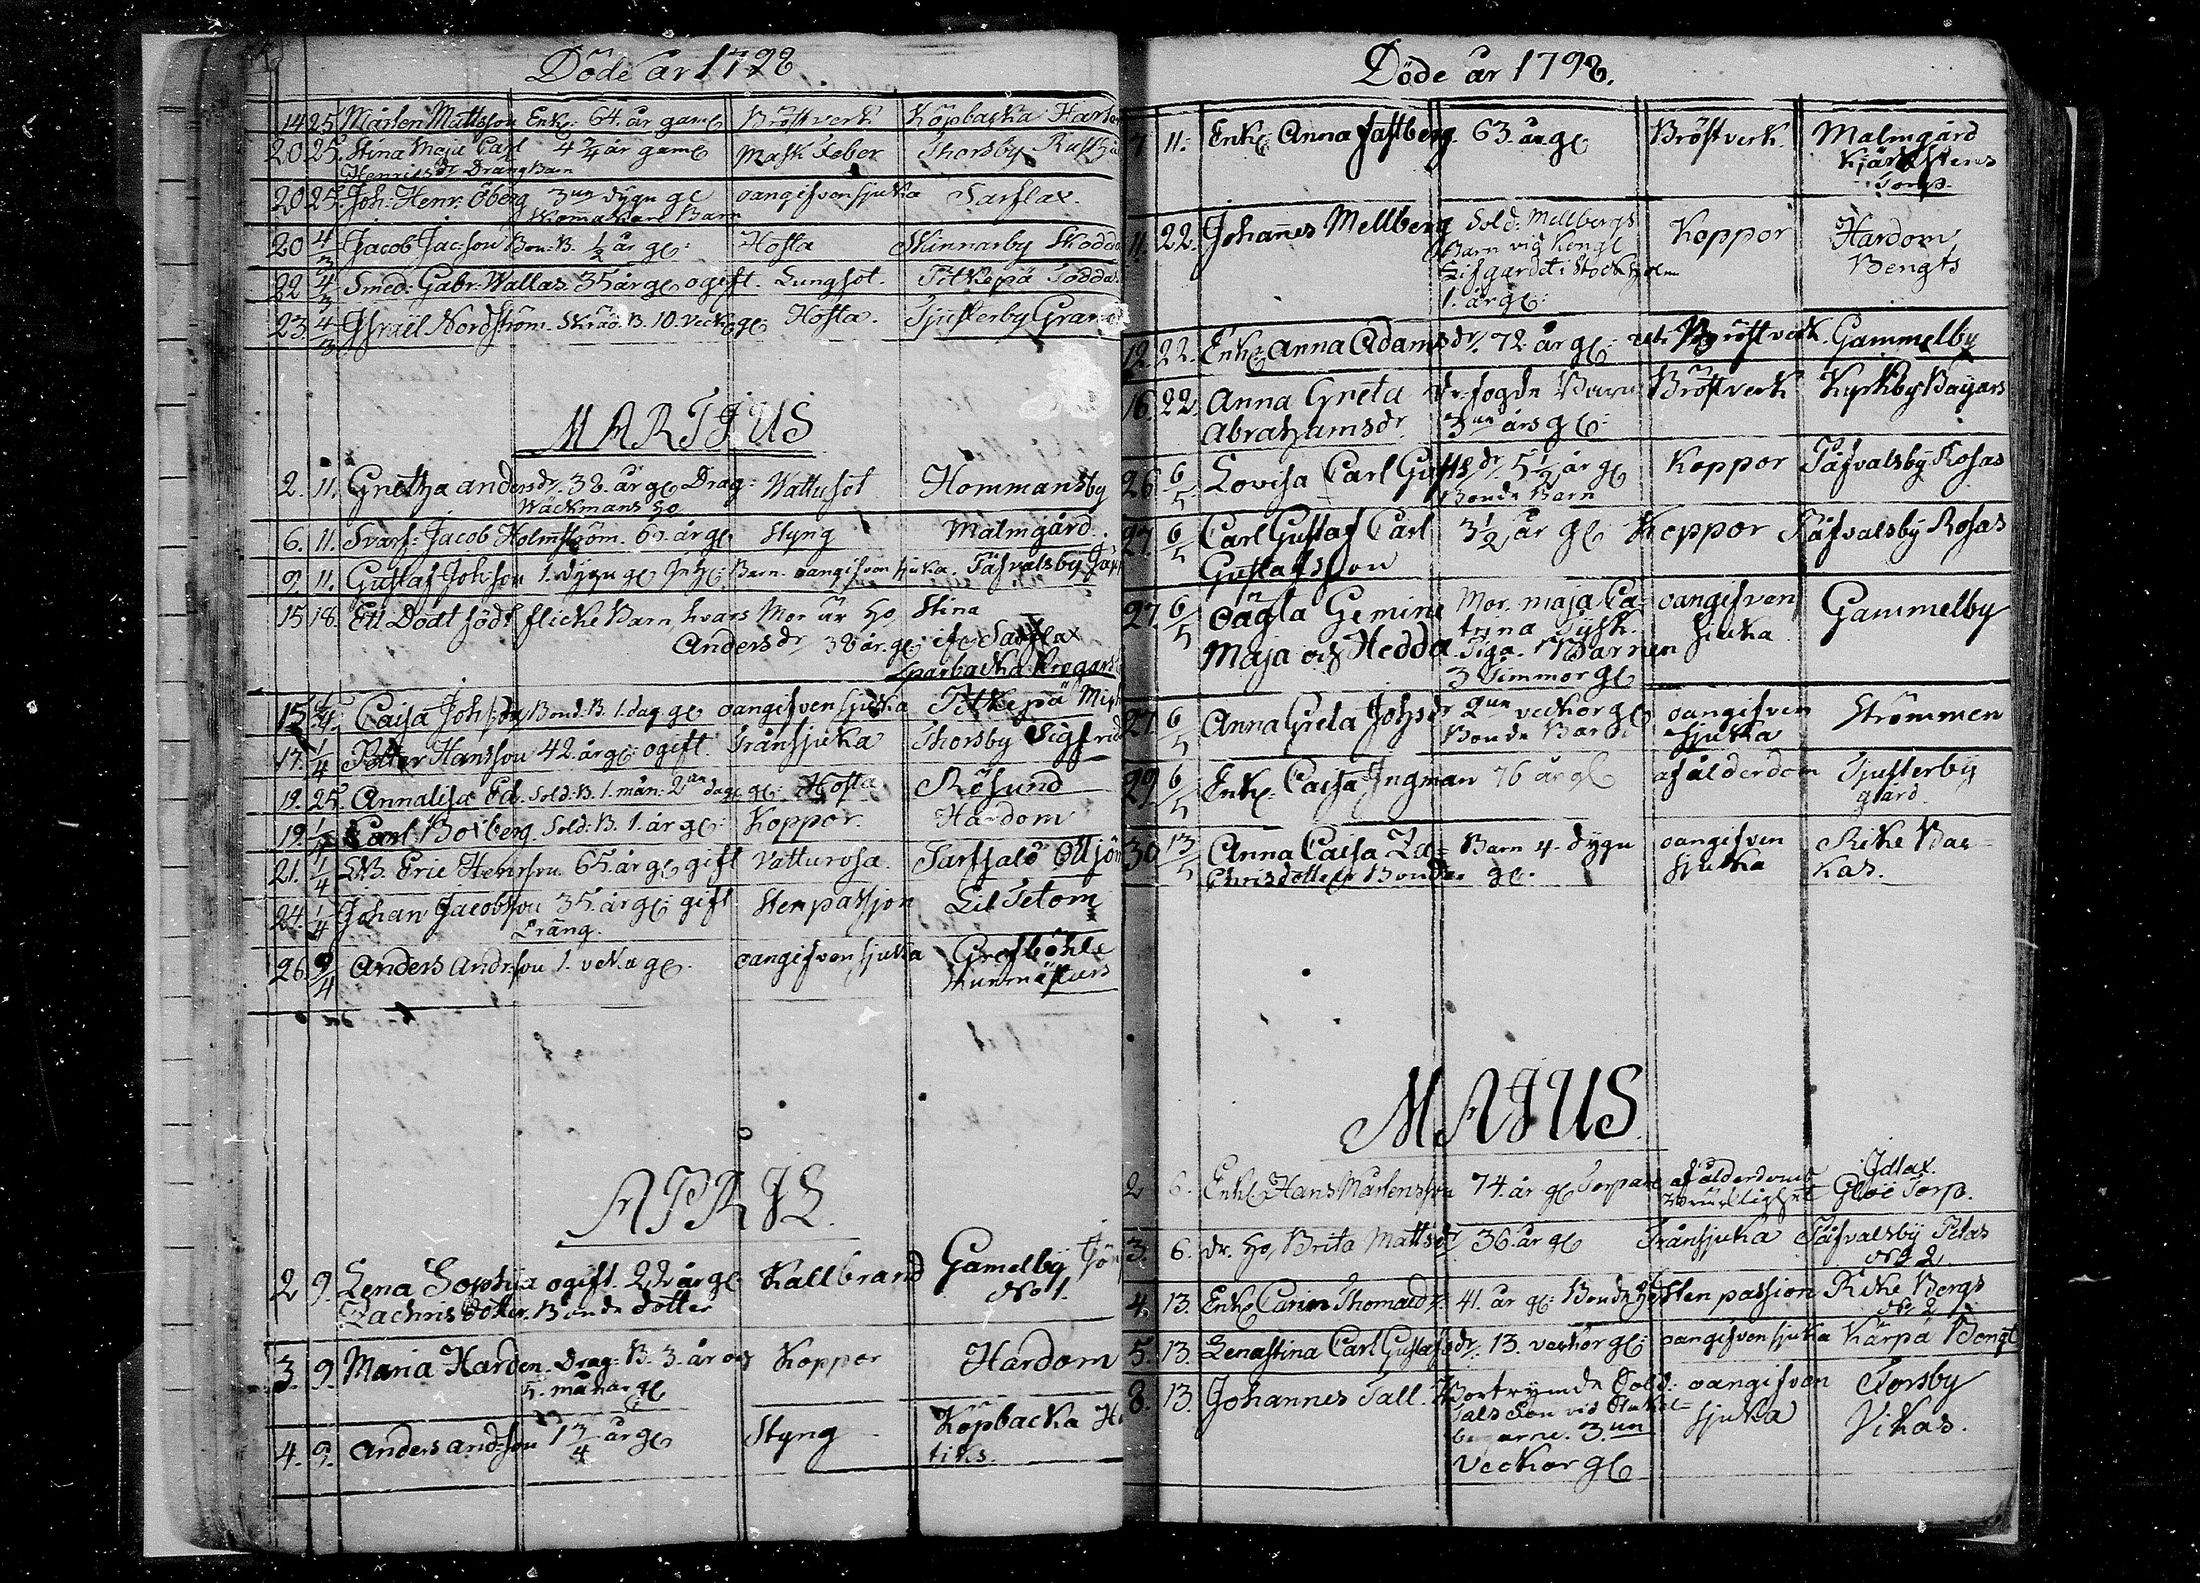 Döde år 1798
14 25 Mårten Mattsson Enkl: 64. år gaml Bröstverk Köpbacka
20 25. Stina Maja Carl 4 3/4 år gaml Mask Feber Thorsby
Henricsdr Dräng Barn
20 25. Joh: Henr: Öberg 3un dygn gl oangifven sjuka Sarflax.
Skomakare Barn
20 4/3 Jacob Jac:son Bon: B. 1/2 år gl: Hosta Skinnarby
22 4/3 Smed: Gabr: Wallas. 35 år gl ogift. Lungsot. Pitkepä
23. 4/3 Israël Nordström. Skräd. B. 10. veck gl: Hosta. Tjusterby
MARTIUS
2. 11. Gretha andersdr. 38. år gl Drag: Vattusot Hommansby
Wäckmans ho
6. 11. Svarf: Jacob Holmström. år gl Styng Malmgård.
9. 11. Gustaf Joh:son 1. dygn gl Inh: Barn. oangifven sjuka. Täfvalsby
15 18. Ett Dödt födt flicke Barn, hvars Mor är ho, Stina
Andersdr 38 år. gl: Sarflax
Sparbacka
15 Caisa Johsdr Bond: B. 1. dag gl oangifven sjuka Pitkepä
17. 1/4 Petter Hansson 42. år gl: ogift. Trånsjuka Thorsby Sigfrids
19. 25. Annalisa Ed. Sold: B. 1. mån: 2un dag: gl: Hosta Rösund
19. 1/4 Carl Boiberg. Sold: B. 1. år gl: Koppor. Hardom
21. 1/4 Eric Henr:son. 65. år gl gift Vatturosa. Sarfsalö
24. 1/4 Johan Jacobsson 35. år gl: gift Stenpassjon Lil Tetom
Dräng.
26. /4 Anders Andr:son 1. veka gl. oangifven sjuka Gresböhle
APRIL
2 9. Lena Sophia ogift. 22 år gl Kallbrand Gamelby
Zachris doter. Bonde dotter No 1.
3. 9. Maria Harden. Drag: B. 3. år och Koppor Hardom
5. månar gl
4. 9. Anders andsson 1 3/4 år gl Styng Köpbacka
tiks.
Döde år 1798.
7 11. Enkl: Anna Fastberg. 63. år gl Bröstverk. Malmgård
Torp.
11. 22. Johanes Mellberg Sold: Mellbergs Koppor Hardom
Barn vid Kongl Bengts
Lifgardet i Stockholm
1. år gl:
12. 22. Enkl: Anna Adamsdr. 72 år gl: Bröstverk. Gammelby
16. 22. Anna Greta fogde Barn Bröstverk Kyrkby
Abrahamsdr 3un års gl:
26 6/5 Lovisa Carl Gustsdr 5 1/2 år gl Koppor Täfvalsby Rosas
Bonde Barn
27. 6/5 Carl Gustaf Carl 3 1/2 år gl Koppor Täfvalsby Rosas
Gustafsson
27. 6/5 oägta Gemine Mor. maja Ca- oangifven Gammelby
trina Tysk. sjuka
Maja och Hedda Piga. Barnen
3 Timmor gl
27. 6/5 Anna Greta Johsdr 2un veckor gl oangifven Strömmen
Bonde Barn sjuka
29 6/5 Enkl: Caisa Ingman 76 år gl af ålderdom Tjusterby
gård.
30 13/5 Anna Caisa Za- Barn 4. dygn oangifven Rike Bac-
Chrisdotter Bonde gl: sjuka kas.
MAJUS
2 6. Enkl: Hans Mårtensson 74. år gl Torpare af ålderdoms Idlax.
bräcklighet Torp.
3. 6. dr. ho, Brita Mattsdr 36. år gl Trånsjuka Täfvalsby Petas
No 2
4. 13. Enkl: Carin Thomasdr. 41. år gl: Bonde Sten passion Rike Bergs
No 2
5. 13. Lenastina Carl Gustafsdr. 13. veckor gl: oangifven sjuka Kärpä Bengts
8. 13. Johannes Tall. Bortrymde Sold: oangifven Torsby
Tals Son vid sjuka Vikas.
3.un
Veckor gl